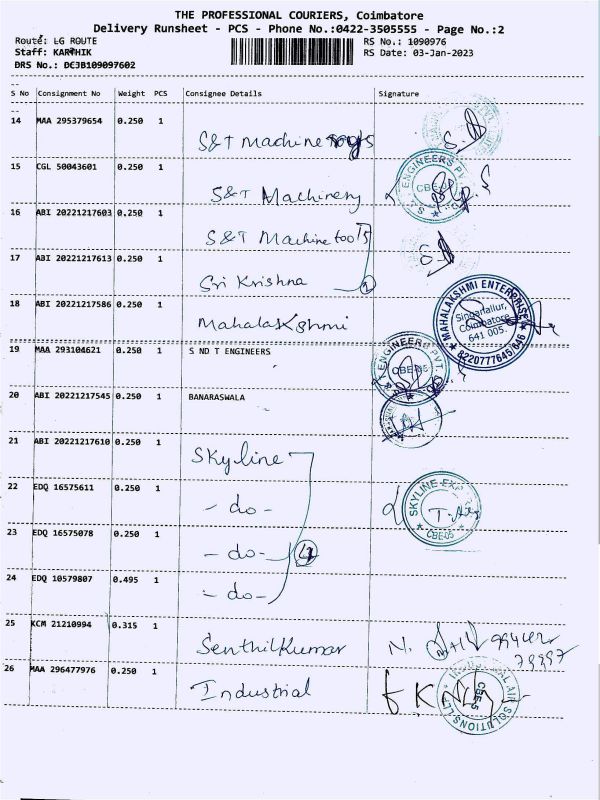 THE PROFESSIONAL COURIERS, Coimbatore
Delivery Runsheet - PCS - Phone No.:0422-3505555 - Page No.:2
Route: LG ROUTE
RS No.: 1090976
Staff: KARTHIK
RS Date: 03-Jan-2023
DRS No.: DCJB109097602
S No Consignment No Weight PCS Consignee Details Signature
14 MAA 295379654 0.250 1
S&T Machine
15 CGL 50043601 0.250 1
S&T Machinery
ENGINEERS PVT.
CBE-
16 ABI 20221217603 0.250 1
S&T Machine tools
17 ABI 20221217613 0.250 1
Sri Krishna
18 ABI 20221217586 0.250 1
Mahalakshmi
MAHALAKSHMI ENTERPRISE
Singanallur,
Coimbatore
641 005.
8220777645/646
19 MAA 293104621 0.250 1 S ND T ENGINEERS
ENGINEERS PVT.
CBE-05
20 ABI 20221217545 0.250 1 BANARASWALA
21 ABI 20221217610 0.250 1
Skyline
22 EDQ 16575611 0.250 1
- do -
SKYLINE
CBE-05
23 EDQ 16575078 0.250 1
- do - 4
24 EDQ 10579807 0.495 1
- do -
25 KCM 21210994 0.315 1
Senthilkumar N.
26 MAA 296477976 0.250 1
Industrial
INDUSTRIAL AIR SOLUTIONS
CBE-5